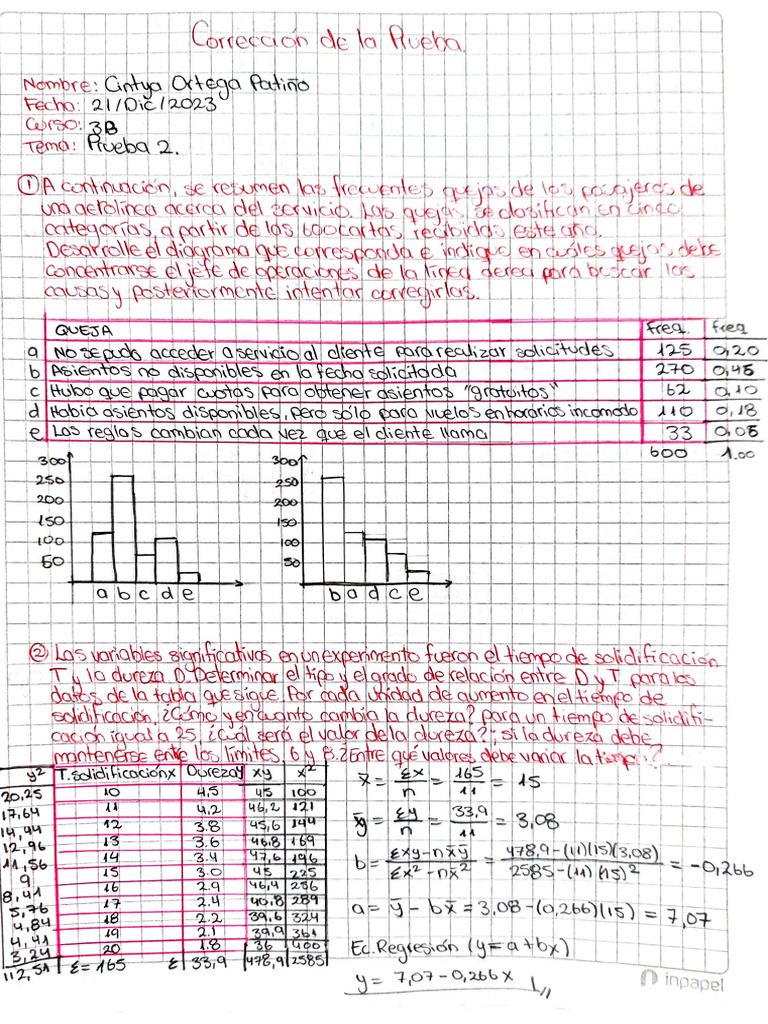 Corrección de la Prueba.
Nombre: Cintya Ortega Patiño
Fecha: 21/Dic/2023
Curso: 3B
Tema: Prueba 2.
① A continuación, se resumen las frecuentes quejas de los pasajeros de
una aerolínea acerca del servicio. Las quejas, se clasifican en cinco
categorías, a partir de las 600 cartas recibidas este año.
Desarrolle el diagrama que corresponda e indique en cuáles quejas, debe
concentrarse el jefe de operaciones de la línea aerea para buscar las
causas y posteriormente intentar corregirlas.
QUEJA freq. freq
a No se pudo acceder a servicio al cliente para realizar solicitudes 125 0,20
b Asientos no disponibles en la fecha solicitada 270 0,45
c Hubo que pagar cuotas para obtener asientos "gratuitos" 62 0,10
d Había asientos disponibles, pero sólo para vuelos en horarios incomodo 110 0,18
e Las reglas cambian cada vez que el cliente llama 33 0,05
600 1.00
300 300
250 250
200 200
150 150
100 100
50 50
a b c d e b a d c e
② Las variables significativas en un experimento fueron el tiempo de solidificación
T y la dureza D. Determinar el tipo y el grado de relación entre D y T para los
datos de la tabla que sigue. Por cada unidad de aumento en el tiempo de
solidificación, ¿Cómo y en cuanto cambia la dureza? para un tiempo de solidifi-
cación igual a 25, ¿cuál será el valor de la dureza?; si la dureza debe
mantenerse ente los límites 6 y 8. ¿Entre qué valores debe variar la tiempo?
y² T. Solidificación x Dureza y xy x²
20,25 10 4,5 45 100
17,64 11 4,2 46,2 121
14,44 12 3.8 45,6 144
12,96 13 3.6 46.8 169
11,56 14 3.4 47,6 196
9 15 3.0 45 225
8,41 16 2.9 46,4 256
5,76 17 2.4 40.8 289
4,84 18 2.2 39,6 324
4,41 19 2.1 39,9 361
3,24 20 1.8 36 400
112,51 Σ=165 Σ 33,9 478,9 2585
x̄ = Σx/n = 165/11 = 15
ȳ = Σy/n = 33,9/11 = 3,08
b = Σxy-nx̄ȳ/Σx²-nx̄² = 478,9-(11)(15)(3,08)/2585-(11)(15)² = -0,266
a = ȳ - bx̄ = 3,08-(0,266)(15) = 7,07
Ec. Regresión (y=a+bx)
y = 7,07-0,266x
inpapel